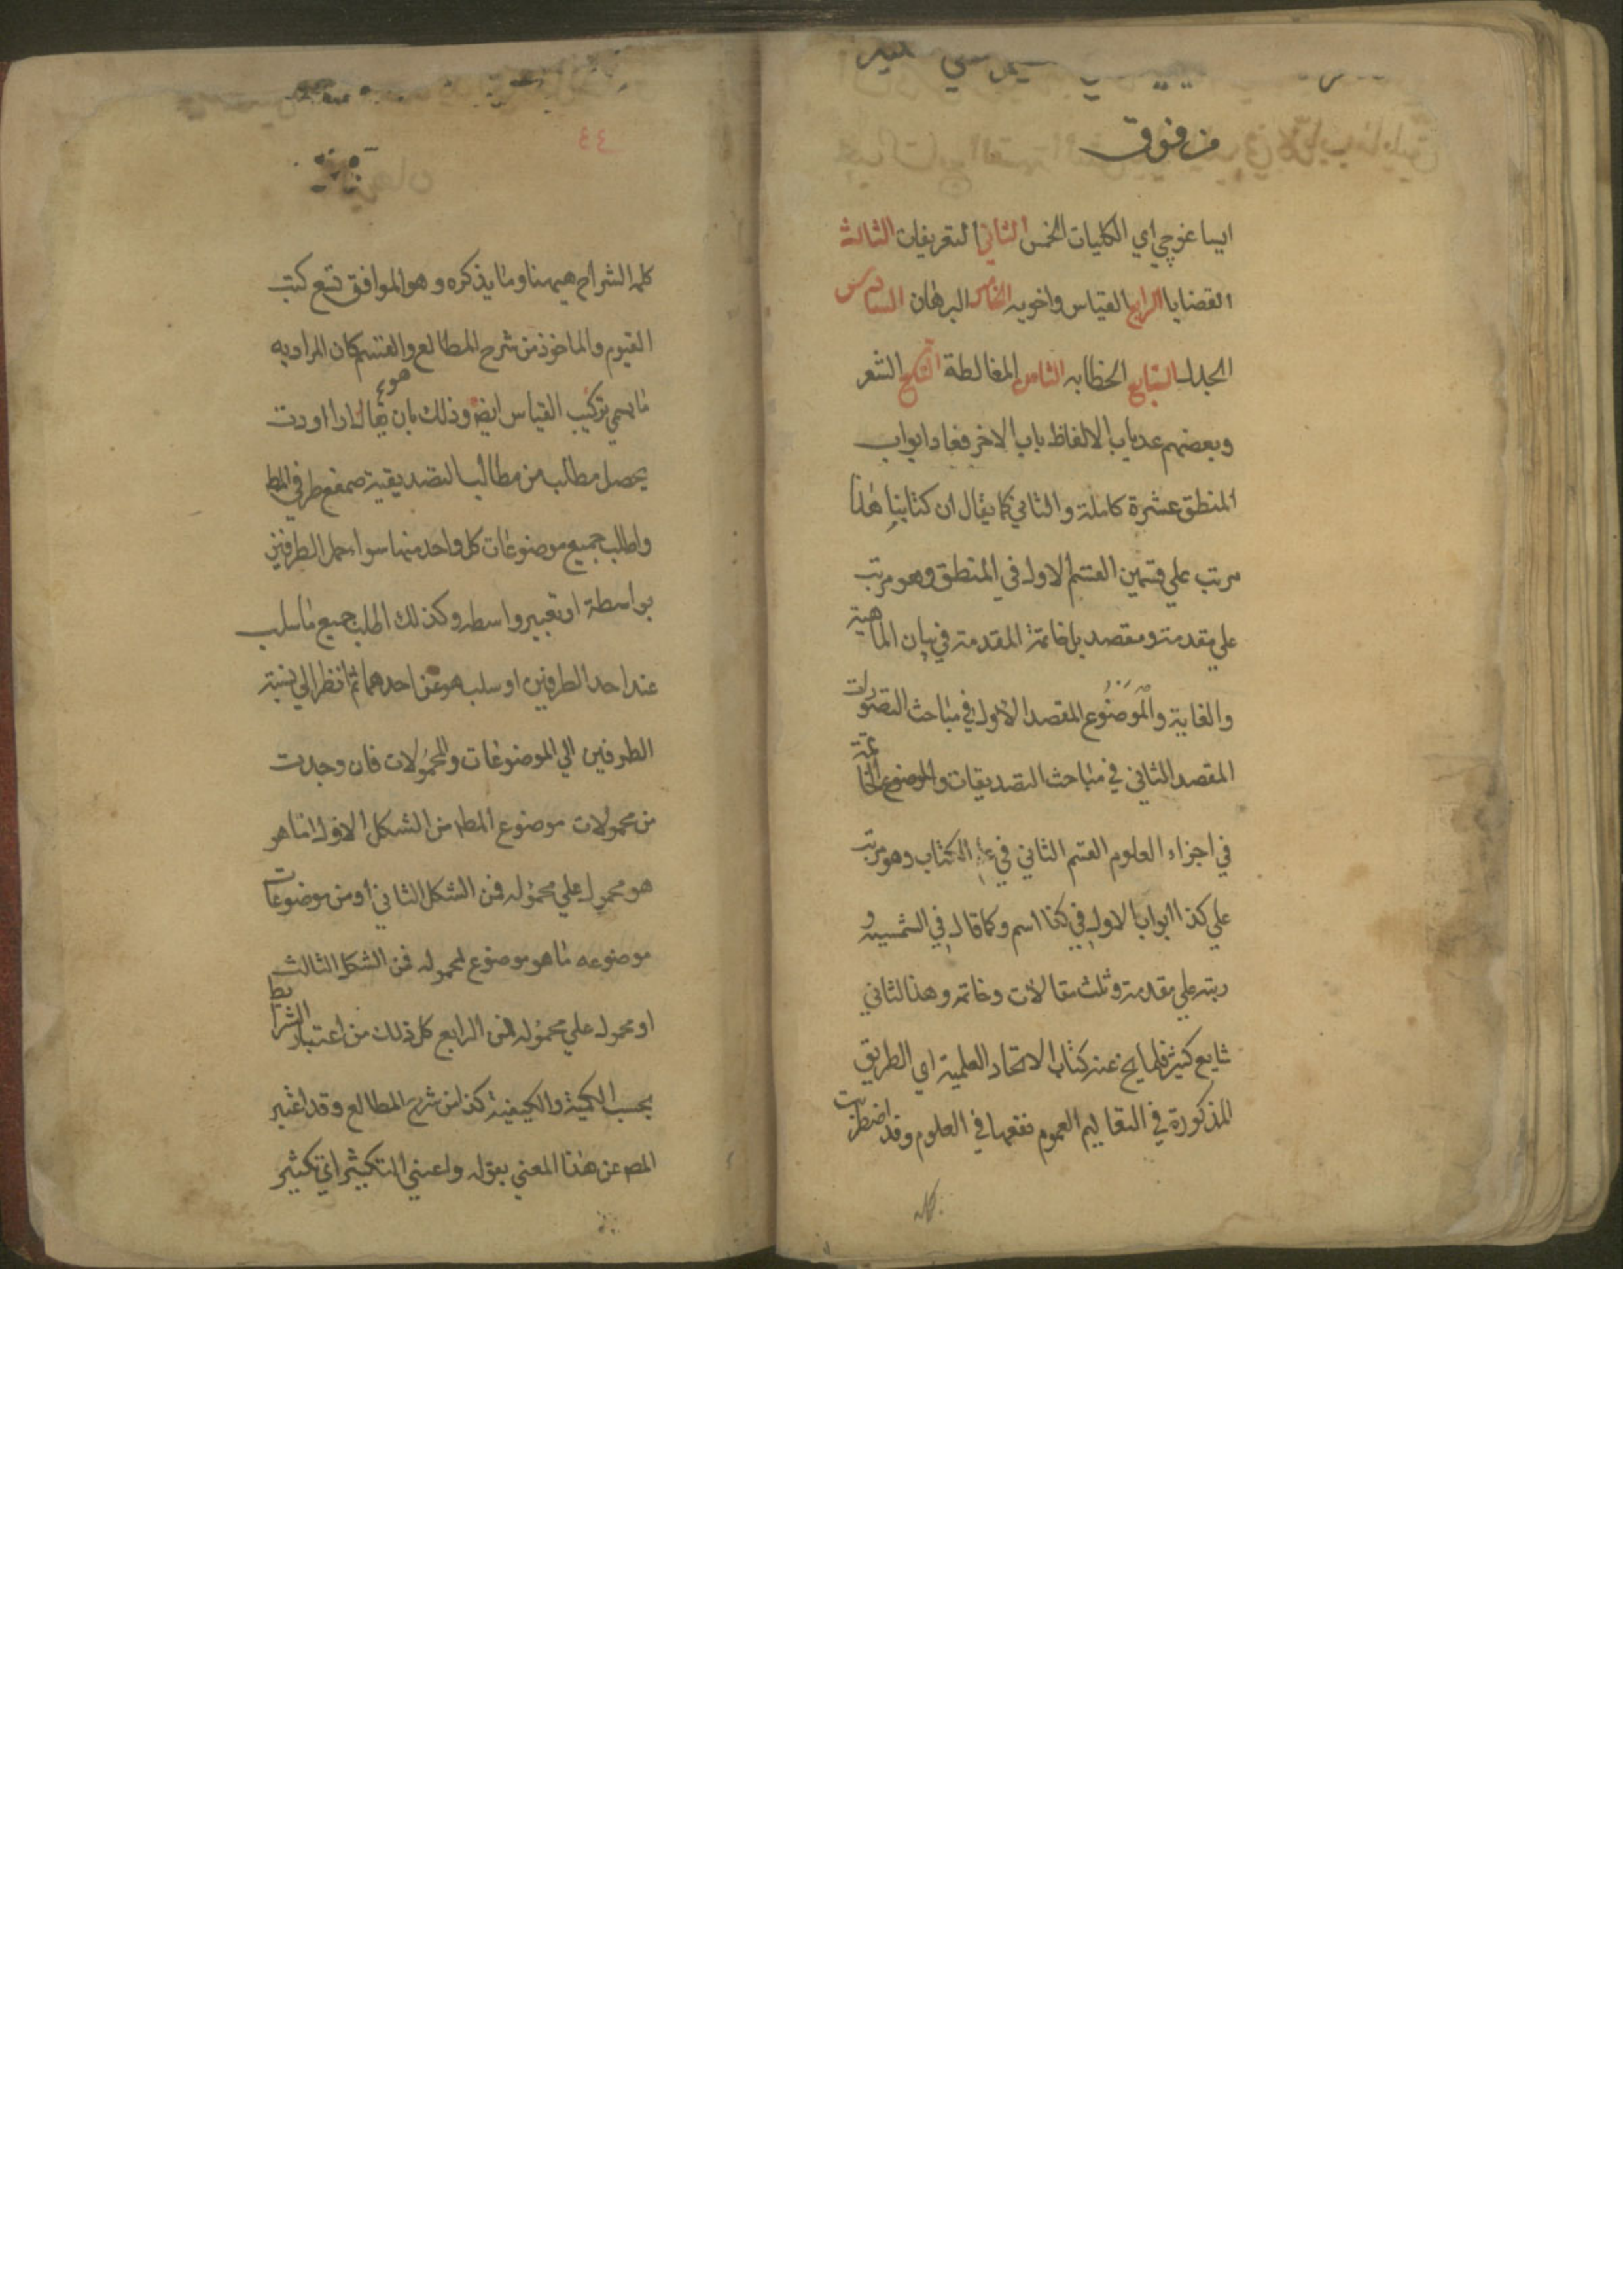 من فوق
ايساغوجي اي الكليات الخمس الثاني التعريفات الثالث
القضايا الرابع القياس واخويه الخامس البرهان السادس
الجدل السابع الخطابه الثامن المغالطة التاسع الشعر
وبعضهم عد باب الالفاظ بابا اخر فعاد ابواب
المنطق عشرة كاملة والثاني كما يقال ان كتابنا هذا
مرتب علي قسمين القسم الاول في المنطق وهو مرتب
علي مقدمة ومقصد بل خاتمة المقدمة في بيان الماهية
والغاية والموضوع المقصد الاول في مباحث التصورات
المقصد الثاني في مباحث التصديقات والموضوع الخاتمة
في اجزاء العلوم القسم الثاني في الكتاب وهو مرتب
علي كذا ابواب الاول في كذا اسم وكما قال في الشمسية و
رتبته علي مقدمة وثلث مقالات وخاتمه وهذا الثاني
شايع كثير فلما يخ عنه كتاب الانحاء العلمية اي الطريق
المذكورة في التعاليم العموم نفعها في العلوم وقد اضطربت
كلمه
٤٤
كلمة الشراح هيهنا وما يذكره وهو الموافق تتبع كتب
القوم والماخوذ من شرح المطالع والقسم كان المراد به
ما يسمي تركيب القياس ايضه وذلك بان يقال اذا اردت
هوع
يحصل مطلب من مطالب التصديقية صمفع طرفي المط
واطلب جميع موضوعات كل واحد منهما سواء حمل الطرفين
بواسطة او تعبير واسطه وكذلك اطلب جميع ما سلب
عند احد الطرفين او سلب هو عن احدهما ثم انظر الي نسبة
الطرفين الي الموضوعات والمحمولات فان وجدت
من محمولات موضوع المط من الشكل الاول اما هو
هو محمول علي محموله فمن الشكل الثاني او من موضوعات
موضوعه ما هو موضوع لمحموله فمن الشكل الثالث
او محمول علي محموله فمن الرابع كل ذلك من اعتبار الشرايط
بحسب الكمية والكيفية كذا من شرح المطالع وقد اعتبر
المص عن هذا المعني بقوله واعني التكثير اي تكثير